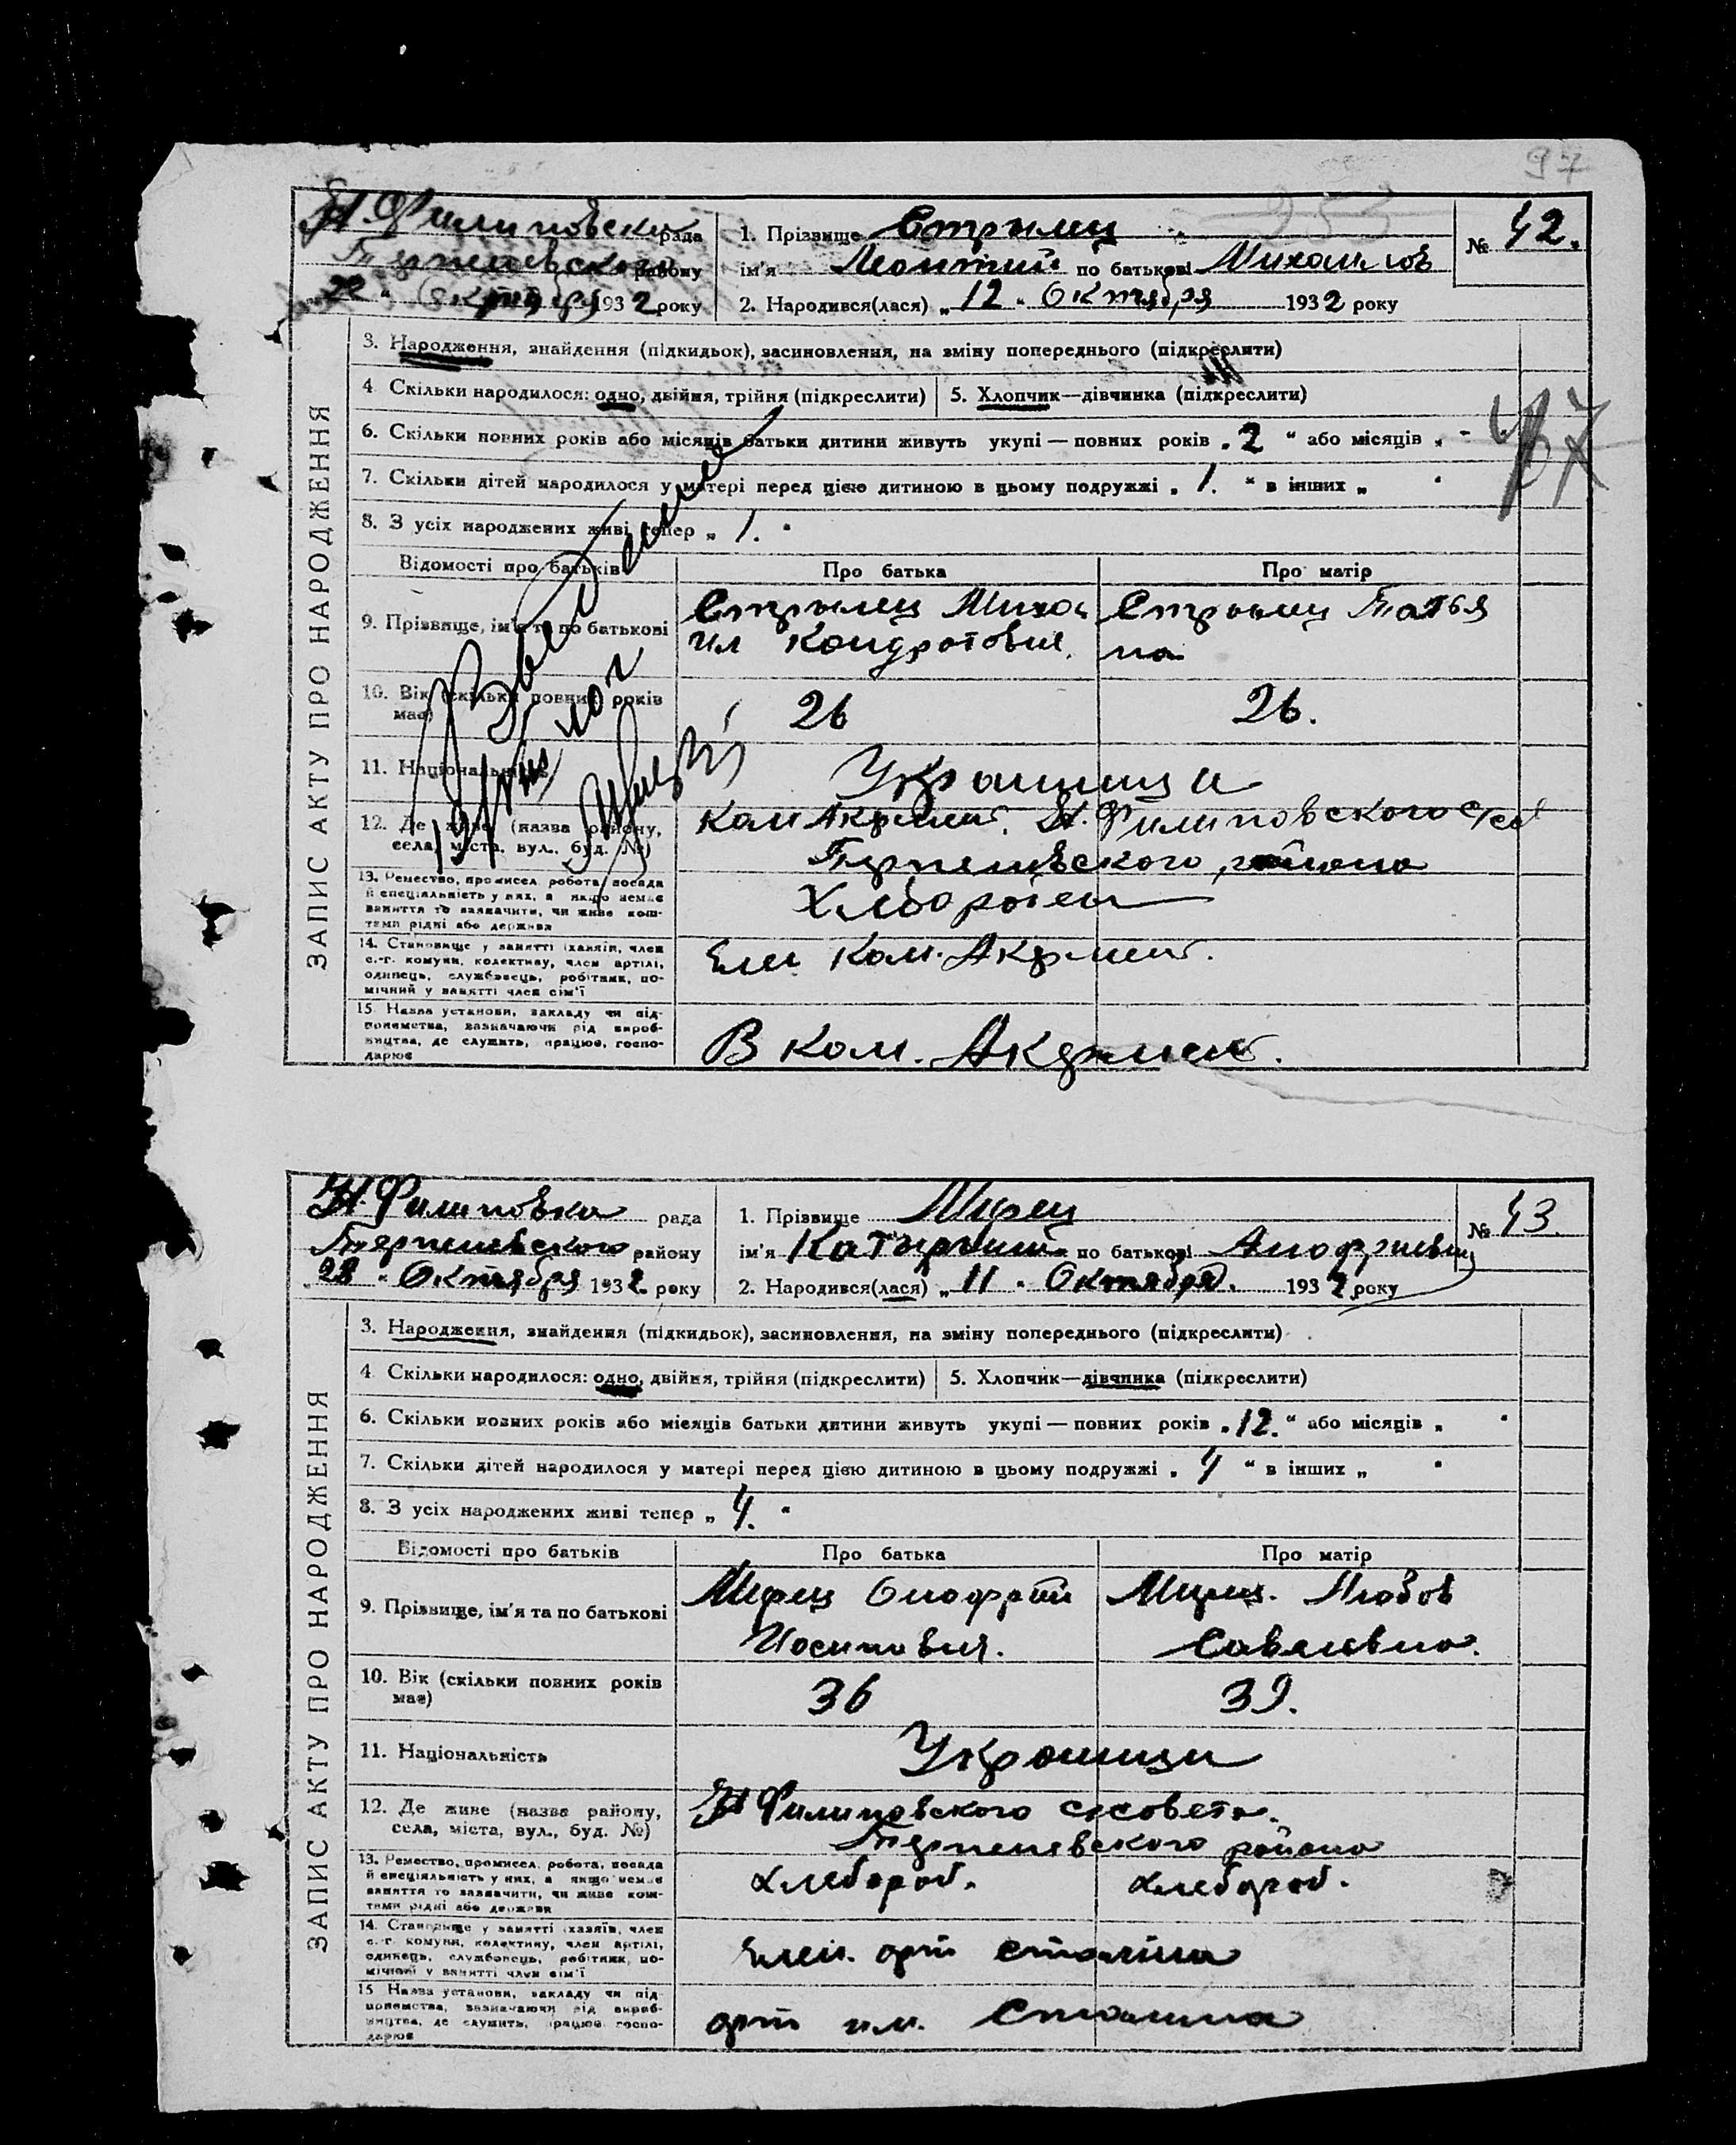 97
Н. Филиповска рада
Терпеневского району
22 " Октября 1932 року
1. Прізвище Стрилец
ім'я Леонтий по батькові Михайлов
2. Народився(лася) „ 12 " Октября 1932 року
№ 42.
ЗАПИС АКТУ ПРО НАРОДЖЕННЯ
3. Народження, знайдення (підкидьок), засиновлення, на зміну попереднього (підкреслити)
4. Скільки народилося: одно, двійня, трійня (підкреслити)
5. Хлопчик—дівчинка (підкреслити)
6. Скільки повних років або місяців батьки дитини живуть укупі — повних років „ 2 " або місяців „ - "
7. Скільки дітей народилося у матері перед цією дитиною в цьому подружжі „ 1. " в інших „ "
8. З усіх народжених живі тепер „ 1. "
Відомості про батьків
Про батька
Про матір
9. Прізвище, ім'я та по батькові
Стрилец Миха
ил Кондротович.
Стрилец Татья
на
10. Вік (скільки повних років
має)
26
26.
11. Національність
Украинци
12. Де живе (назва району,
села, міста, вул., буд. №)
Н. Филиповского
Терпеневского района
13. Ремество, промисел, робота, посада
й спеціяльність у них, а якщо немає
заняття то зазначити, чи живе кош-
тами рідні або держави
14. Становище у занятті (хазяїн, член
с.-г. комуни, колективу, член артілі,
одинець, службовець, робітник, по-
мічний у занятті член сім'ї
Член Ком.
15. Назва установи, закладу чи під-
приємства, зазначаючи рід вироб-
ництва, де служить, працює, госпо-
дарює
В ком.
Н Филиповка рада
Терпеневского району
28 " Октября 1932 року
1. Прізвище Мирец
ім'я по батькові
2. Народився(лася) „ 11 " Октября. 1932 року
№ 43.
ЗАПИС АКТУ ПРО НАРОДЖЕННЯ
3. Народження, знайдення (підкидьок), засиновлення, на зміну попереднього (підкреслити)
4. Скільки народилося: одно, двійня, трійня (підкреслити)
5. Хлопчик—дівчинка (підкреслити)
6. Скільки повних років або місяців батьки дитини живуть укупі — повних років „ 12. " або місяців „ "
7. Скільки дітей народилося у матері перед цією дитиною в цьому подружжі „ 4 " в інших „ "
8. З усіх народжених живі тепер „ 4. "
Відомості про батьків
Про батька
Про матір
9. Прізвище, ім'я та по батькові
Мирец Онофрий
Иосипович.
Мирец. Любов
Савелевна.
10. Вік (скільки повних років
має)
36
39.
11. Національність
Украинци
12. Де живе (назва району,
села, міста, вул., буд. №)
Н Филиповского с/совета.
Терпеневского района
13. Ремество, промисел, робота, посада
й спеціяльність у них, а якщо немає
заняття то зазначити, чи живе кош-
тами рідні або держави
хлебороб.
хлебороб.
14. Становище у занятті (хазяїн, член
с.-г. комуни, колективу, член артілі,
одинець, службовець, робітник, по-
мічний у занятті член сім'ї
Член. арт сталина
15. Назва установи, закладу чи під-
приємства, зазначаючи рід вироб-
ництва, де служить, працює, госпо-
дарює
арт им. Сталина